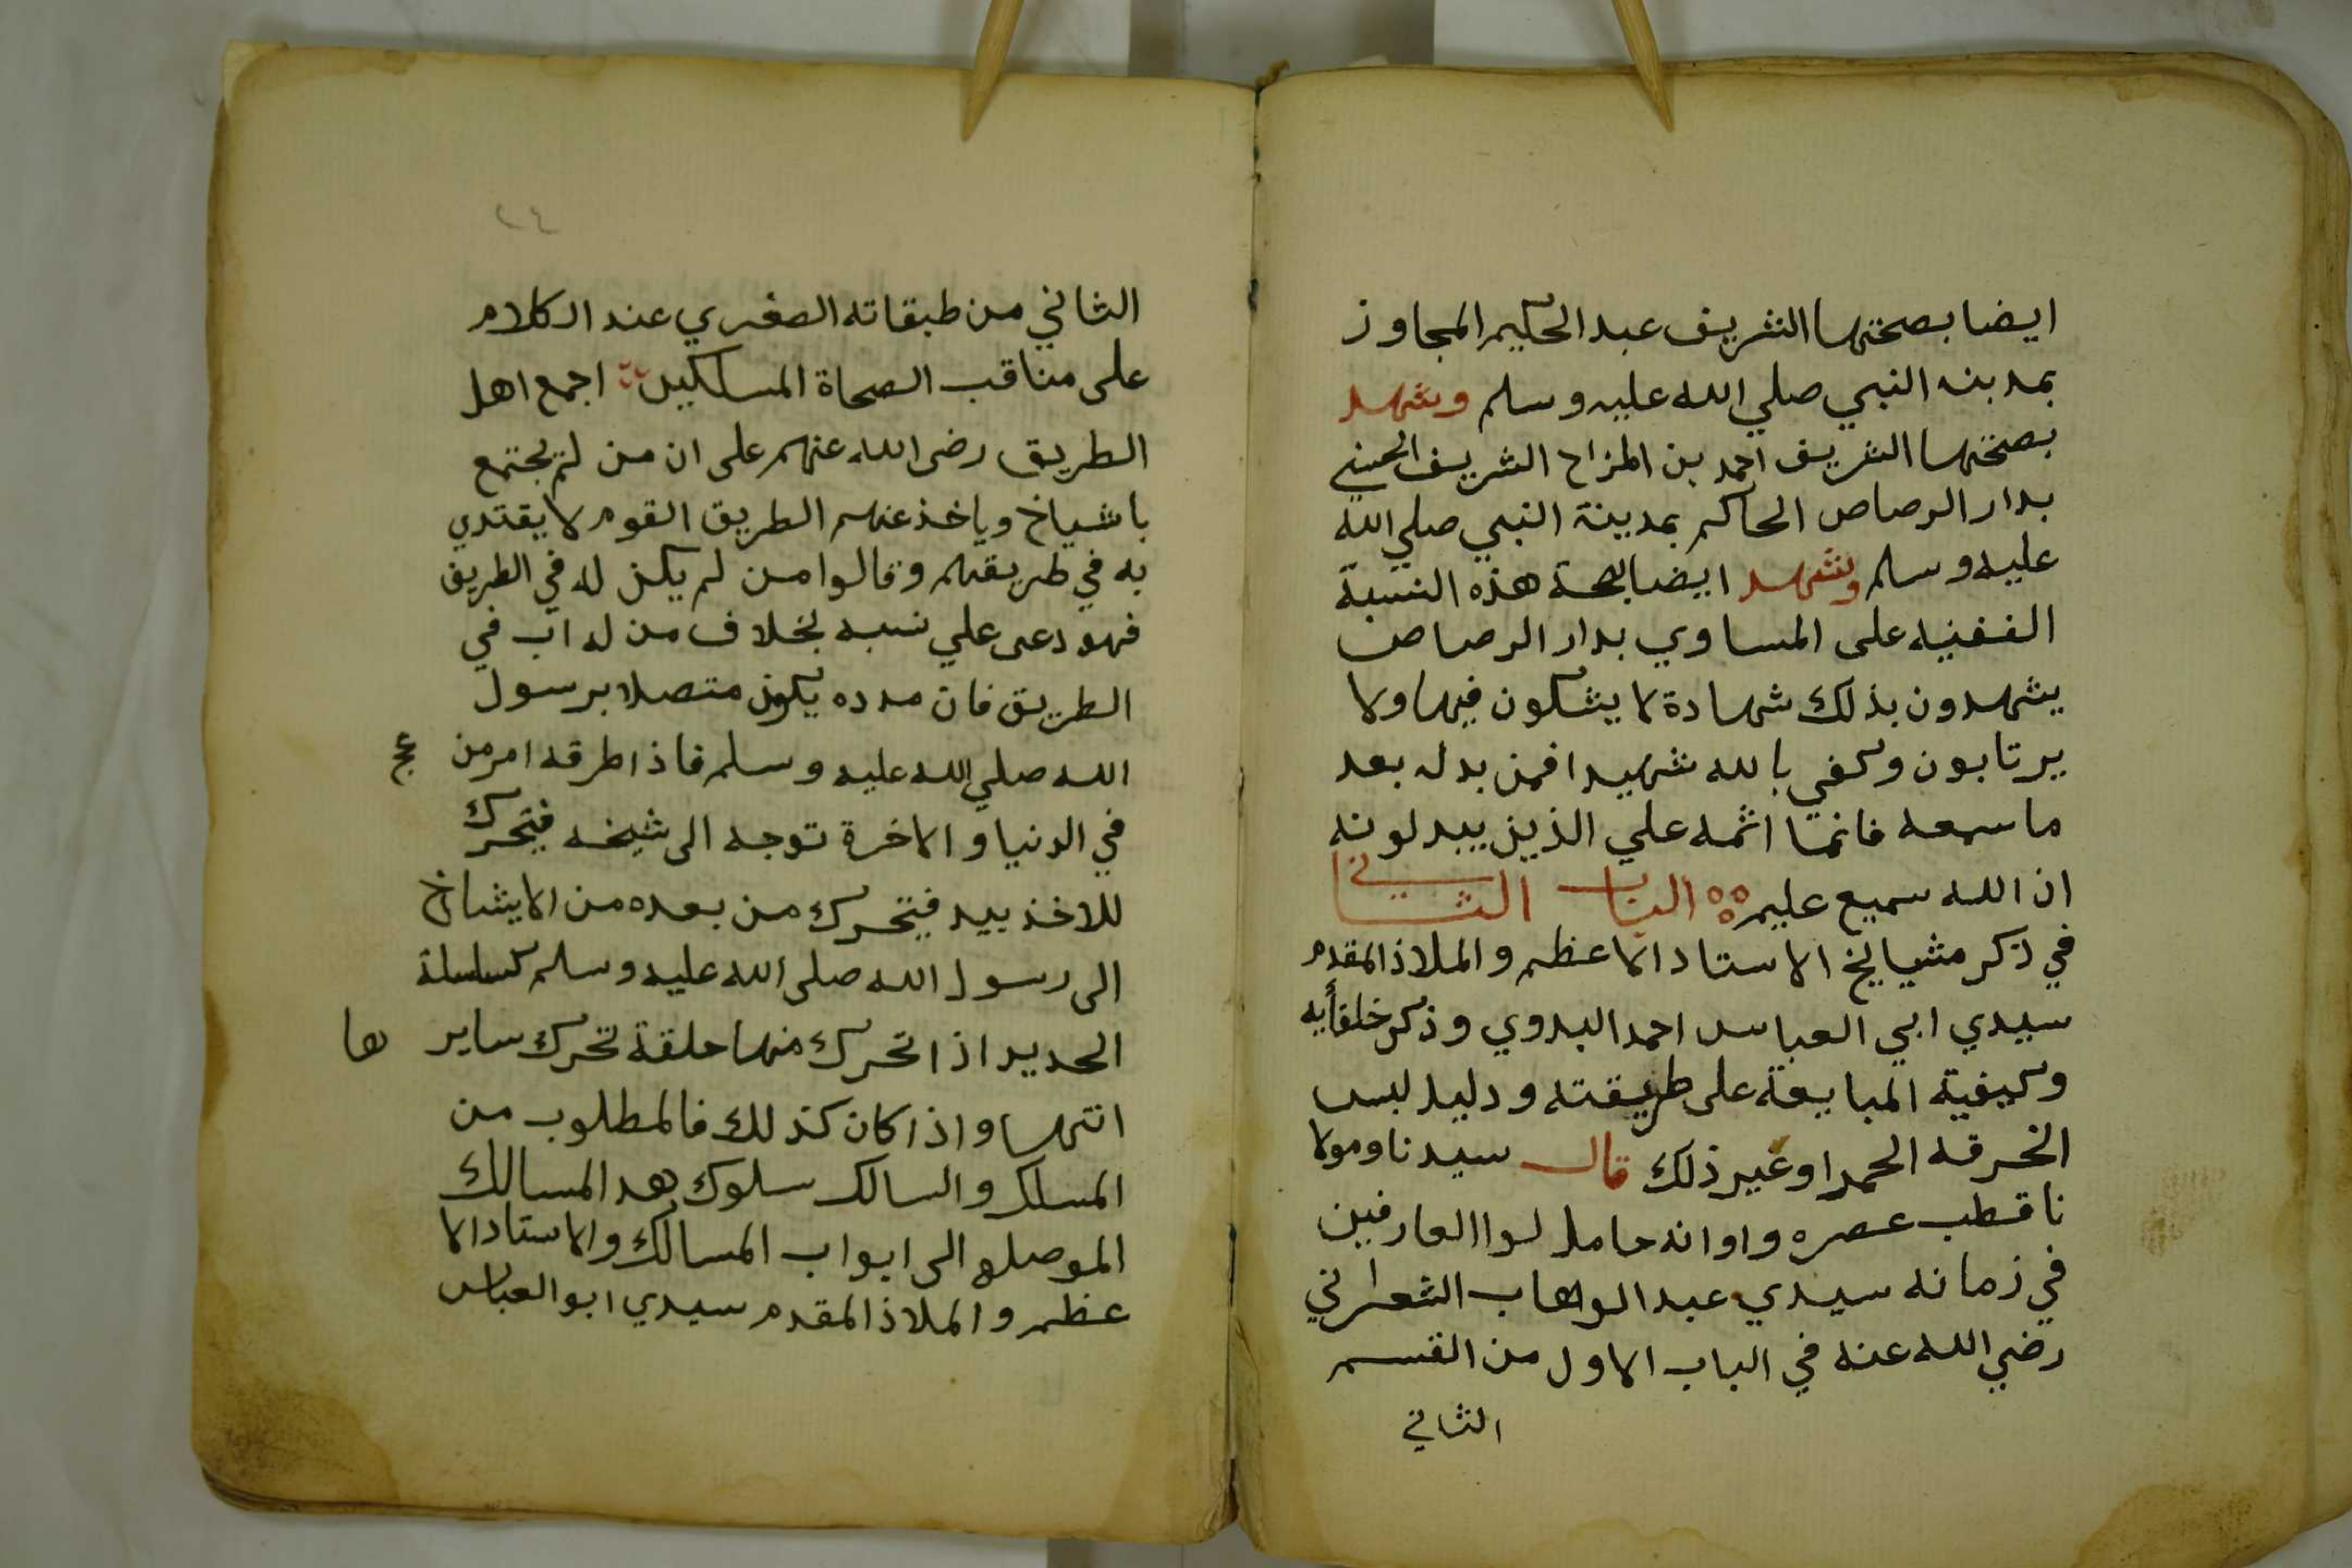 ايضا بصحتها الشريف عبد الحكيم المجاوز
بمدينه النبي صلي الله عليه وسلم وشهد
بصحتها الشريف احمد بن المزاح الشريف الحسني
بدار الرصاص الحاكم بمدينة النبي صلي الله
عليه وسلم وشهد ايضا بصحة هذه النسبة
الفقيه على المساوي بدار الرصاص
يشهدون بذلك شهادة لا يشكون فيها ولا
يرتابون وكفي بالله شهيدا فمن بدله بعد
ما سمعه فانما اثمه علي الذين يبدلونه
ان الله سميع عليم الباب الثاني
في ذكر مشايخ الاستاد الاعظم والملاذ المقدم
سيدي ابي العباس احمد البدوي وذكر خلفأيه
وكيفية المبايعة على طريقته ودليل لبس
الخرقه الحمرا وغير ذلك قال سيدنا ومولا
نا قطب عصره واوانه حامل لوا العارفين
في زمانه سيدي عبد الوهاب الشعراني
رضي الله عنه في الباب الاول من القسم
الثاني
٢٤
الثاني من طبقاته الصغري عند الكلام
على مناقب الصحاة المسلكين اجمع اهل
الطريق رضى الله عنهم على ان من لم يجتمع
باشياخ وياخذ عنهم الطريق القوم لا يقتدي
به في طريقهم وقالوا من لم يكن له في الطريق
فهو دعى علي نسبه بخلاف من له اب في
الطريق فان مدده يكون متصلا برسول
الله صلي الله عليه وسلم فاذا طرقه امر من
في الدنيا والاخرة توجه الى شيخه فيتحرك
للاخذ بيد فيتحرك من بعده من الايشاخ
الى رسول الله صلى الله عليه وسلم كسلسلة
الحديد اذا تحرك منها حلقة تحرك ساير ها
انتها واذا كان كذلك فالمطلوب من
المسلك والسالك سلوك هد المسالك
الموصله الى ابواب المسالك والاستاد الا
عظم والملاذ المقدم سيدي ابو العباس